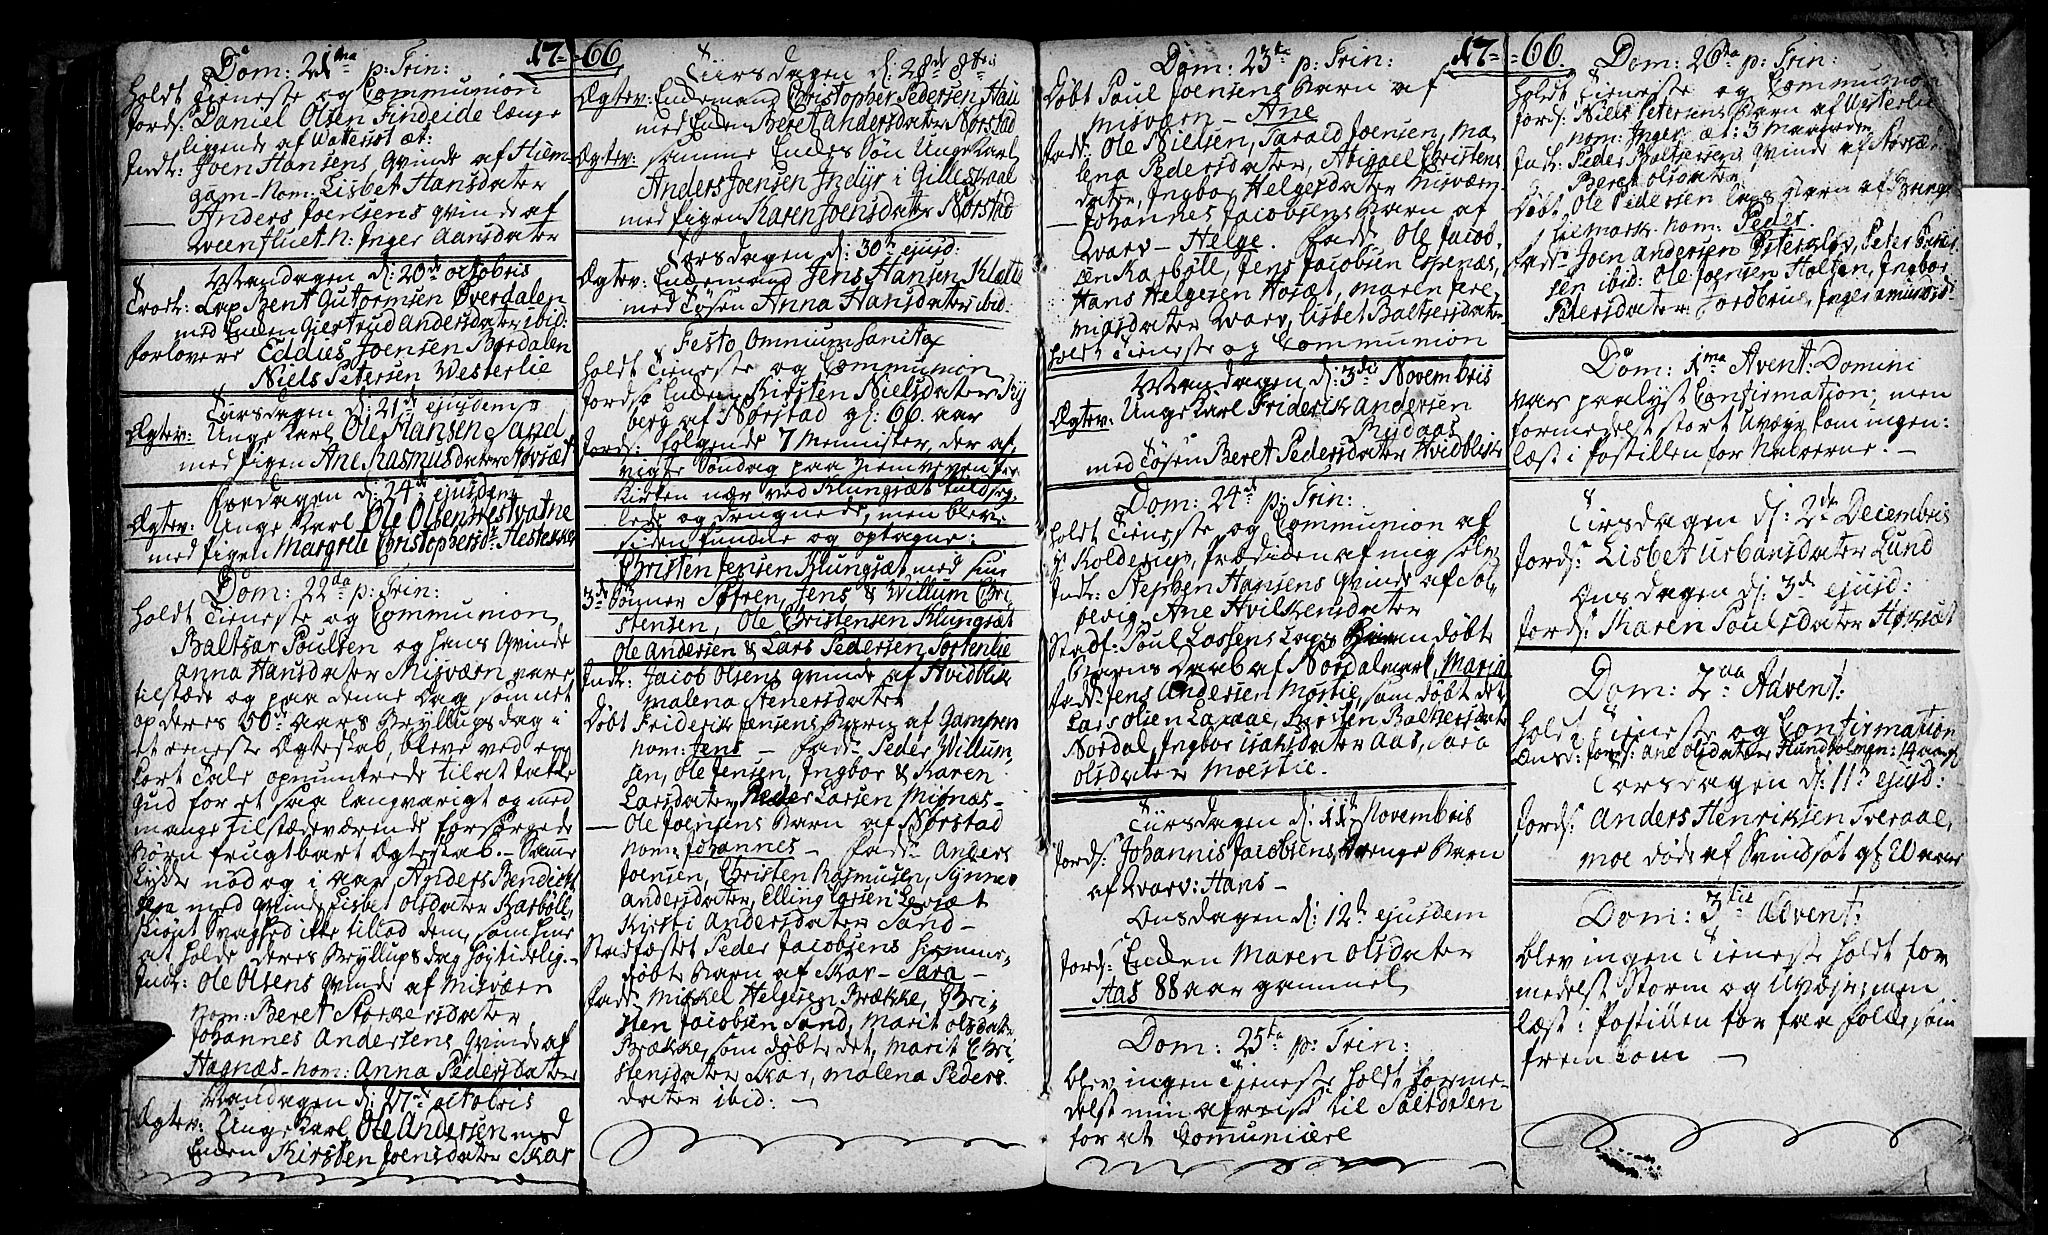 17-66
Dom: 21ma p: Trin:
holdt Tieneste og Communion
Jords: Daniel Olsen Findeide længe
liggende af Watersot æt:
Indt: Joen Hansens Qvinde af Hiem-
gam - Nom: Lisbet Hansdater
— Anders Joensens qvinde af
Qveenfluet - N: Inger Aansdater
Mandagen d: 20de octobris
Trol: Lap Bent Gutormsen Øverdalen
med Enken Giertrud Andersdater ibid:
forlovere Eddies Joensen Bordalen
Niels Petersen Westerlie
Tiirsdagen d: 21de ejusdem
Ægtev: Unge Karl Ole Hansen Sand
med Pigen Ane Rasmusdater Horsæt
Fredagen d: 24de ejusdem
Ægtev: Unge Karl Ole Olsen Westvatne
med pigen Margrete Christophersd: Hestekker
Dom: 22da p: Trin:
holdt Tieneste og Communion
Baltsar Poulsen og hans Qvinde
Anna Hansdater Misværn vare
tilstæde og paa denne Dag som net
op deres 50de aars Bryllups dag i
et eneste Ægteskab, bleve ved en
kort Tale opmuntrede til at takke
Gud for et saa langvarigt og med
mange tilstædeværende forsørgede
Børn frugtbart Ægteskab. - Samme
Lykke nød og i aar Anders Bendicht
sen med qvinde Lisbet Olsdater Karbøll,
skiønt Svaghed ikke tillod dem, som hine
at holde deres Bryllups dag høytidelig. -
Indt: Ole Olsens Qvinde af Misværn
Nom: Beret Storkersdater
Johannes Andersens Qvinde af
Hagnæs - nom: Anna Pedersdater
Mandagen d: 27de octobris
Ægtev: Unge Karl Ole Andersen med
Enken Kirsten Joensdater Skar
Tiirsdagen d: 28de 8bris
Ægtev: Enkemand Christopher Pedersen Hau
med Enken Beret Andersdater Norstad
Ægtev: samme Enkes Søn Unge Karl
Anders Joensen Indyr i Gilleskaal
med pigen Karen Joensdater Norstad
Torsdagen d: 30te ejusd:
Ægtev: Enkemand Jens Hansen Klætte
med Tøsen Anna Hansdater ibid:
Festo Omnium Sanctor
holdt Tieneste og Communion
Jords: Enken Kirsten Nielsdater Ry
berg af Norstad gl: 66 aar
Jords: følgende 7 Mennisker, der af,
vigte Søndag paa Hiemveyen fra
Kirken nær ved Klungsæt kuldsey,
lede og druknede, men bleve
siden fundne og optagne:
Christen Jensen Klungsæt med sine
3de Sønner Søfren, Jens & Willum Chri-
stensen, Ole Christensen Klungsæt
Ole Andersen & Lars Pedersen Sortenlie
Indt: Jacob Olsens qvinde af Hvidblik
Malena Stenersdater
Døbt Friderik Jensens Barn af Gampen
nom: Jens - Fadd: Peder Willum-
sen, Ole Jensen, Ingbor & Karen
Larsdater, Peder Larsen Misnæs -
— Ole Joensens Barn af Norstad
nom: Johannes - Fadd: Anders
Joensen, Christen Rasmusen, Synnev
Andersdater, Elling Larsen Leesæt
Kirsti Andersdater Sand -
Stadfæstet Peder Jacobsens hiemme-
døbte Barn af Skar - Sara -
Fadd: Mickel Helgesen Brække, Chri-
sten Jacobsen Sand, Marit Olsdater
Brække, som døbte det, Marit Chri-
stensdater Skar, Malena Peders
dater ibid: -
17-66
Dom: 23de p: Trin:
Døbt Poul Joensens Barn af
Misværn - Ane
Fadd: Ole Nielsen, Tarald Joensen, Ma-
lena Pedersdater, Abigael Christens
dater, Ingbor Helgesdater Misværn
— Johannes Jacobsens Barn af
Qvarv - Helge. Fadd: Ole Jacob,
sen Karbøll, Jens Jacobsen Espenæs,
Hans Helgesen Hosæt, Maren Jere
miasdater Qvarv, Lisbet Baltsersdater
holdt Tieneste og Communion
Mandagen d: 3die Novembris
Ægtev: Unge Karl Friderik Andersen
Misdaas
med Tøsen Beret Pedersdater Hvidblik
Dom: 24de p: Trin:
holdt Tieneste og Communion af
Hr Kolderup, prædiken af mig selv
Indt: Stephen Hansens Qvinde af Sol,
bevig Ane Hvilkensdater
Stadf: Poul Larsens Laps Hiem døbte
Barns Daab af Nordalmark, Maria
Fadd: Jens Andersen Mostie, som døbte det,
Lars Olsen Laxaae, Kirsten Baltsersdater
Nordal, Ingbor Isaksdater Aas, Sara
Olsdater Moestie.
Tiirsdagen d: 11te Novembris
Jords: Johannis Jacobsens Drenge Barn
af Qvarv: Hans -
Onsdagen d: 12te ejusdem
Jords: Enken Maren Olsdater
Aas 88 aar gammel
Dom: 25ta p: Trin:
blev ingen Tieneste holdt forme-
delst min afreise til Saltdalen
for at Communicere
Dom: 26ta p: Trin:
holdt Tieneste og Communion
Jords: Niels Petersens Barn af Westerlie
nom: Inger æt: 3 maaneder
Indt: Peder Baltsersens Qvinde af Storsæt
Beret Olsdater
Døbt Ole Pedersen Laps Barn af Brings
lie mark. nom: Peder.
Fadd: Joen Andersen Østerkløv, Peter Peter
sen ibid: Ole Joensen Holten, Ingbor
Petersdater: Jordbrue, Inger Amundsd:
Dom: 1ma Avent: Domini
var paalyst Confirmation, men
formedelst stort Uveyr kom ingen:
læst i Postillen for Naboerne. -
Tirsdagen d: 2de Decembris
Jords: Lisbet Urbansdater Lund
Onsdagen d: 3de ejusd:
Jords: Karen Poulsdater Høksæt
Dom: 2da Advent:
holdt Tieneste og Confirmation
Onsd: Jords: Ane Olsdater Hundholmen: 14 aar gl
Torsdagen d: 11te ejusd:
Jords: Anders Henriksen Tveraae,
moe døde af Svindsot gl: 20 aar
Dom: 3tie Advent:
blev ingen Tieneste holdt for
medelst Storm og Uvæjr; men
læst i Postillen for faa Folk, som
frem kom -